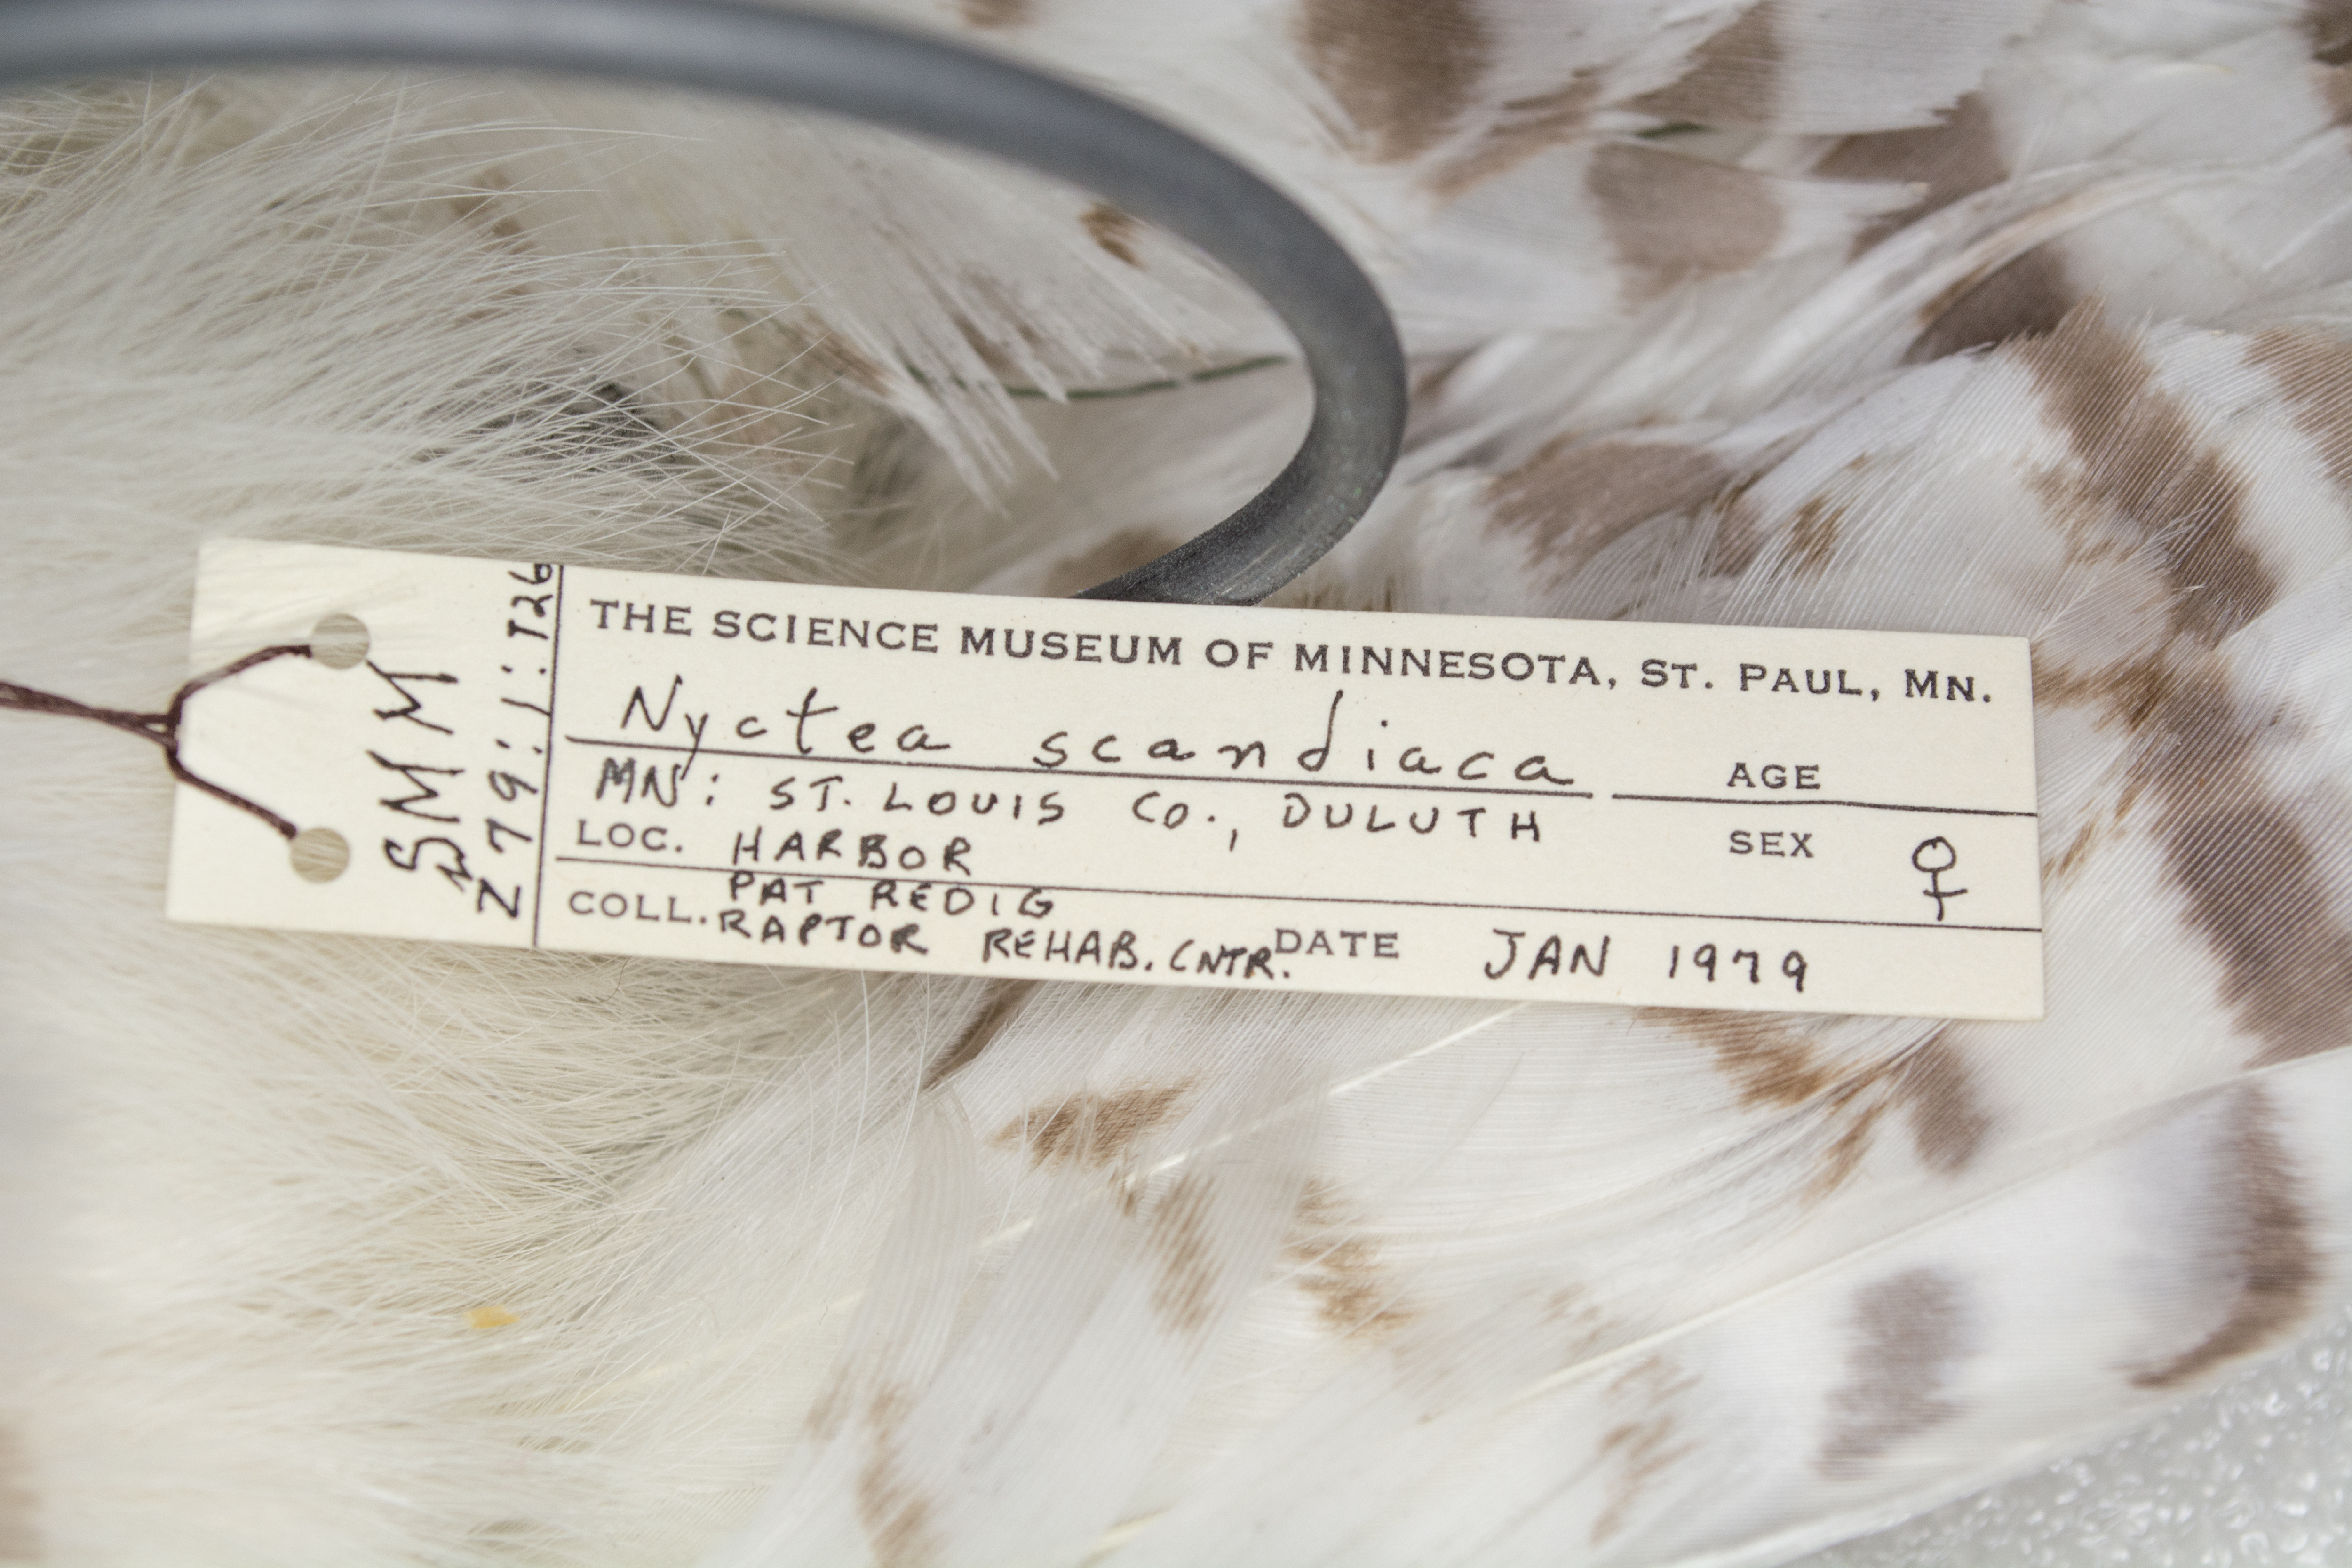 SMM
Z79:1:126
THE SCIENCE MUSEUM OF MINNESOTA, ST. PAUL, MN.
Nyctea scandiaca
AGE
MN: ST. LOUIS CO., DULUTH
LOC. HARBOR
SEX ♀
PAT REDIG
COLL. RAPTOR REHAB. CNTR.
DATE JAN 1979